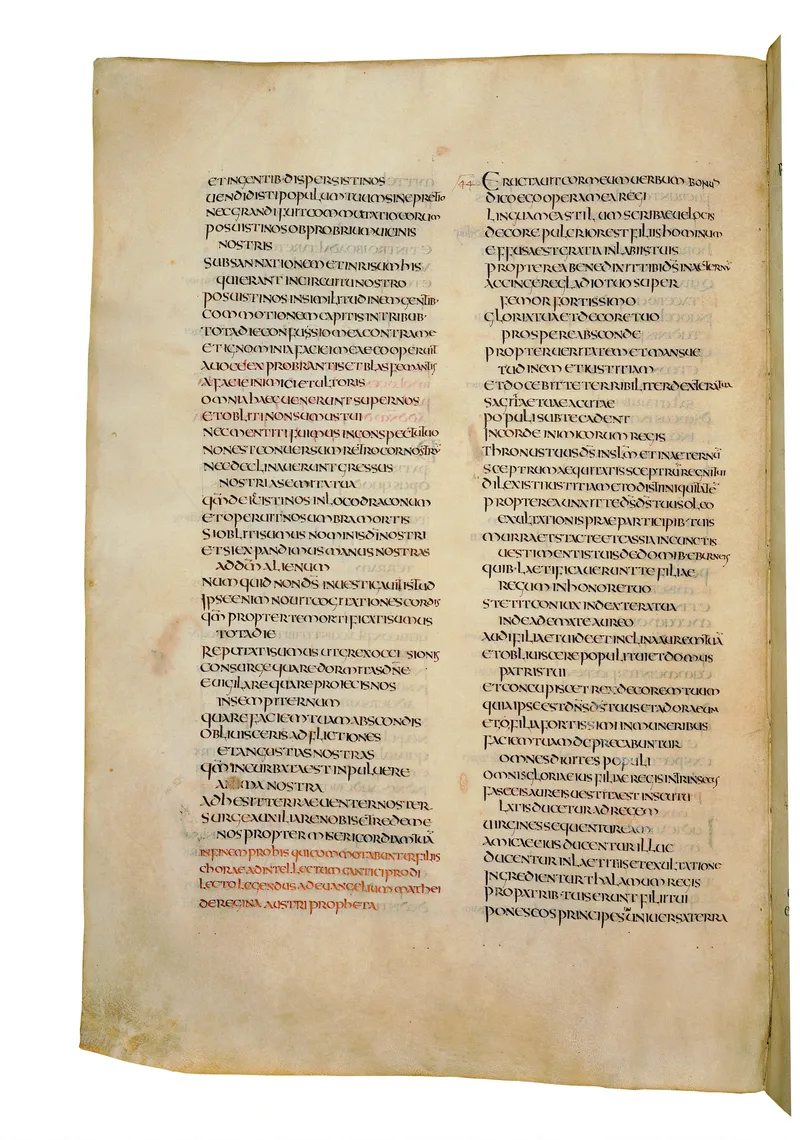 ET IN GENTIB· DISPERSISTI NOS
UENDIDISTI POPULUM TUUM SINE PRETIO
NEC GRANDI FUIT COMMUTATIO EORUM
POSUISTI NOS OBPROBRIUM UICINIS
NOSTRIS
SUBSANNATIONEM ET INRISUM HIS
QUI ERANT IN CIRCUITU NOSTRO
POSUISTI NOS IN SIMILITUDINEM GENTIB·
COMMOTIONEM CAPITIS IN TRIBUB·
TOTA DIE CONFUSSIO MEA CONTRA ME
ET IGNOMINIA FACIEI MEAE COOPERUIT
A UOCE EXPROBRANTIS ET BLASFEMANTIS
A FACIE INIMICI ET ULTORIS
OMNIA HAEC UENERUNT SUPER NOS
ET OBLITI NON SUMUS TUI
NEC MENTITI FUIMUS IN CONSPECTU TUO
NON EST CONUERSUM RETRO COR NOSTRŪ
NEC DECLINAUERUNT GRESSUS
NOSTRI A SEMITA TUA
QM̄ DEIECISTI NOS IN LOCO DRACONUM
ET OPERUIT NOS UMBRA MORTIS
SI OBLITI SUMUS NOMINIS DĪ NOSTRI
ET SI EXPANDIMUS MANUS NOSTRAS
AD DM̄ ALIENUM
NUMQUID NON DS̄ INUESTIGAUIT ISTUD
IPSE ENIM NOUIT COGITATIONES CORDIS
QM̄ PROPTER TE MORTIFICATI SUMUS
TOTA DIE
REPUTATI SUMUS UT GREX OCCISIONIS
CONSURGE QUARE DORMITAS DN̄E
EUIGILA RE QUARE PROIECIS NOS
IN SEMPITERNUM
QUARE FACIEM TUAM ABSCONDIS
OBLIUISCERIS ADFLICTIONES
ET ANGUSTIAS NOSTRAS
QM̄ INCURBATA EST IN PULUERE
ANIMA NOSTRA
ADHESIT TERRAE UENTER NOSTER
SURGE AUXILIARE NOBIS ET REDEME
NOS PROPTER MISERICORDIAM TUĀ
IN FINEM PRO HIS QUI COMMOTABUNTUR FILIIS
CHORAE AD INTELLECTUM CANTICI PRO DI
LECTO LEGENDUS AD EUANGELIUM MATHEI
DE REGINA AUSTRI PROPHETA
44 ERUCTAUIT COR MEUM UERBUM BONŪ
DICO EGO OPERA MEA REGI
LINGUA MEA STILUM SCRIBAE UELOCIS
DECORE PULCRIOR EST FILIIS HOMINUM
EFFUSA EST GRATIA IN LABIIS TUIS
PROPTEREA BENEDIXIT TIBI DS̄ IN AETERNŪ
ACCINGERE GLADIO TUO SUPER
FEMOR FORTISSIMO
GLORIA TUA ET DECORE TUO
PROSPERE ABSCONDE
PROPTER UERITATEM ET MANSUE
TUDINEM ET IUSTITIAM
ET DOCEBIT TE TERRIBILITER DEXTERA TUA
SAGITTAE TUAE ACUTAE
POPULI SUB TE CADENT
IN CORDE INIMICORUM REGIS
THRONUS TUUS DS̄ IN SL̄M ET IN AETERNŪ
SCEPTRUM AEQUITATIS SCEPTRŪ REGNI TUI
DILEXISTI IUSTITIAM ET ODISTI INIQUITATĒ
PROPTEREA UNXIT TE DS̄ DS̄ TUUS OLEO
EXULTATIONIS PRAE PARTICIPIB· TUIS
MURRA ET STACTE ET CASSIA IN CUNCTIS
UESTIMENTIS TUIS DE DOMIB· EBURNEIS
QUIB· LAETIFICAUERUNT TE FILIAE
REGUM IN HONORE TUO
STETIT CONIUX IN DEXTERA TUA
IN DEADEMATE AUREO
AUDI FILIA ET UIDE ET INCLINA AUREM TUĀ
ET OBLIUISCERE POPULI TUI ET DOMUS
PATRIS TUI
ET CONCUPISCET REX DECOREM TUUM
QUIA IPSE EST DN̄S DS̄ TUUS ET ADORA EUM
ET O FILIA FORTISSIMI IN MUNERIBUS
FACIEM TUAM DEPRECABUNTUR
OMNES DIUITES POPULI
OMNIS GLORIA EIUS FILIAE REGIS INTRINSECUS
FASCEIS AUREIS UESTITA EST IN SCUTU
LATIS DUCETUR AD REGEM
UIRGINES SEQUENTUR EAM
AMICAE EIUS DUCENTUR ILLUC
DUCENTUR IN LAETITIIS ET EXULTATIONE
INGREDIENTUR THALAMUM REGIS
PRO PATRIB· TUIS ERUNT FILII TUI
PONES EOS PRINCIPES IN UNIUERSA TERRA